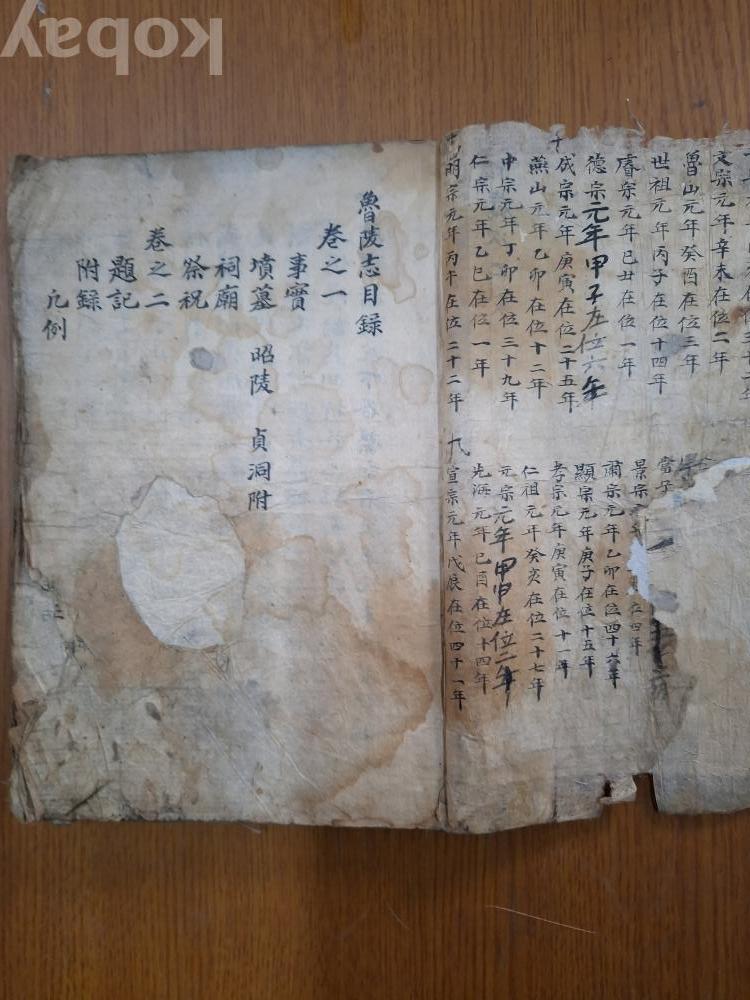 kobay
文宗元年辛未在位二年
魯山元年癸酉在位三年
世祖元年丙子在位十四年
睿宗元年己丑在位一年
德宗元年甲子在位六年
成宗元年庚寅在位二十五年
燕山元年乙卯在位十二年
中宗元年丁卯在位三十九年
仁宗元年乙巳在位一年
明宗元年丙午在位二十二年
景宗元年 在位四年
肅宗元年乙卯在位四十六年
顯宗元年庚子在位十五年
孝宗元年庚寅在位十一年
仁祖元年癸亥在位二十七年
元宗元年甲申在位二年
光海元年己酉在位十四年
宣宗元年戊辰在位四十一年
魯陵志目録
卷之一
事實
墳墓 昭陵 貞洞附
祠廟
祭祝
卷之二
題記
附録
凡例